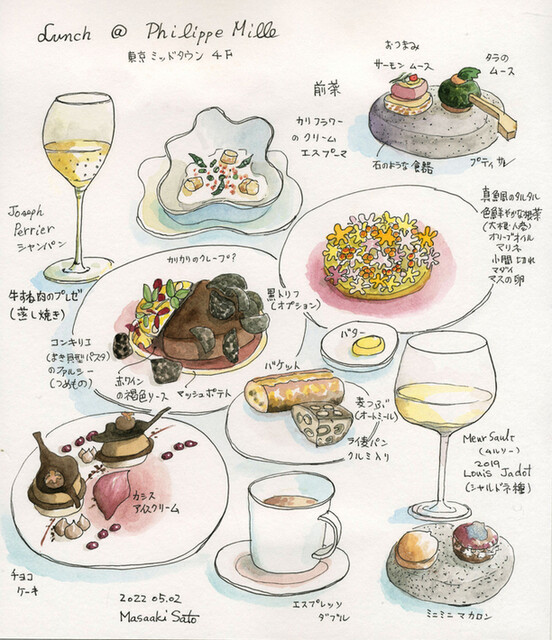 Lunch @ Philippe Mille
東京ミッドタウン 4F
おつまみ
サーモン ムース
タラの
ムース
前菜
カリフラワー
のクリーム
エスプーマ
石のような食器
プティサレ
Joseph
Perrier
シャンパン
色鮮やかな根菜
(大根・人参)
オリーブオイル
マリネ
マダイ
マスの卵
カリカリのクレープ?
牛すね肉のブレゼ
(蒸し焼き)
黒トリフ
(オプション)
バター
コンキリエ
のファルシー
(つめもの)
赤ワイン
の褐色ソース
マッシュポテト
バケット
麦つぶ
(オートミール)
ライ麦パン
クルミ入り
Meursault
(ムルソー)
2019
Louis Jadot
(シャルドネ種)
カシス
アイスクリーム
チョコ
ケーキ
2022 05.02
Masaaki Sato
エスプレッソ
ダブル
ミニミニ マカロン